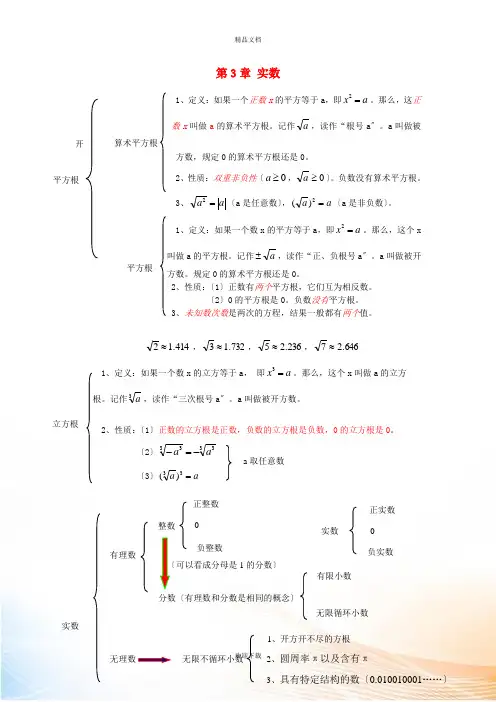 精品文档
第3章 实数
1、定义：如果一个正数x的平方等于a，即x²=a。那么，这正
数x叫做a的算术平方根。记作√a，读作“根号a〞。a叫做被
方数，规定0的算术平方根还是0。
开
算术平方根
2、性质：双重非负性〔a≥0，√a≥0〕。负数没有算术平方根。
平方根
3、√a²=|a|〔a是任意数〕，(√a)²=a〔a是非负数〕。
1、定义：如果一个数x的平方等于a，即x²=a。那么，这个x
叫做a的平方根。记作±√a，读作“正、负根号a〞。a叫做被开
平方根
方数。规定0的算术平方根还是0。
2、性质：〔1〕正数有两个平方根，它们互为相反数。
〔2〕0的平方根是0。负数没有平方根。
3、未知数次数是两次的方程，结果一般都有两个值。
√2≈1.414，√3≈1.732，√5≈2.236，√7≈2.646
1、定义：如果一个数x的立方等于a， 即x³=a。那么，这个x叫做a的立方
根。记作∛a，读作“三次根号a〞。a叫做被开方数。
立方根
2、性质：〔1〕正数的立方根是正数，负数的立方根是负数，0的立方根是0。
〔2〕∛-a³=-∛a³
a取任意数
〔3〕(∛a)³=a
正整数
正实数
整数
0
实数
0
负整数
负实数
有理数
〔可以看成分母是1的分数〕
有限小数
分数〔有理数和分数是相同的概念〕
无限循环小数
实数
1、开方开不尽的方根
无理数
无限不循环小数
2、圆周率π以及含有π
3、具有特定结构的数〔0.010010001……〕